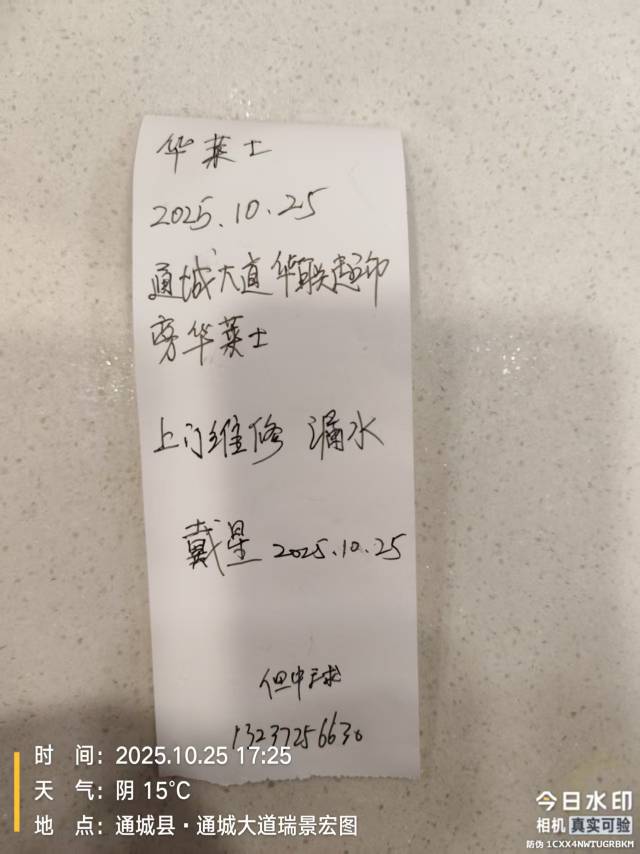 华莱士
2025.10.25
通城大道华联超市
旁华莱士
上门维修 漏水
戴星 2025.10.25
但中球
13237256630
时 间：2025.10.25 17:25
天 气：阴 15℃
地 点：通城县·通城大道瑞景宏图
今日水印
相机 真实可验
防伪 1CXX4NWTUGRBKM